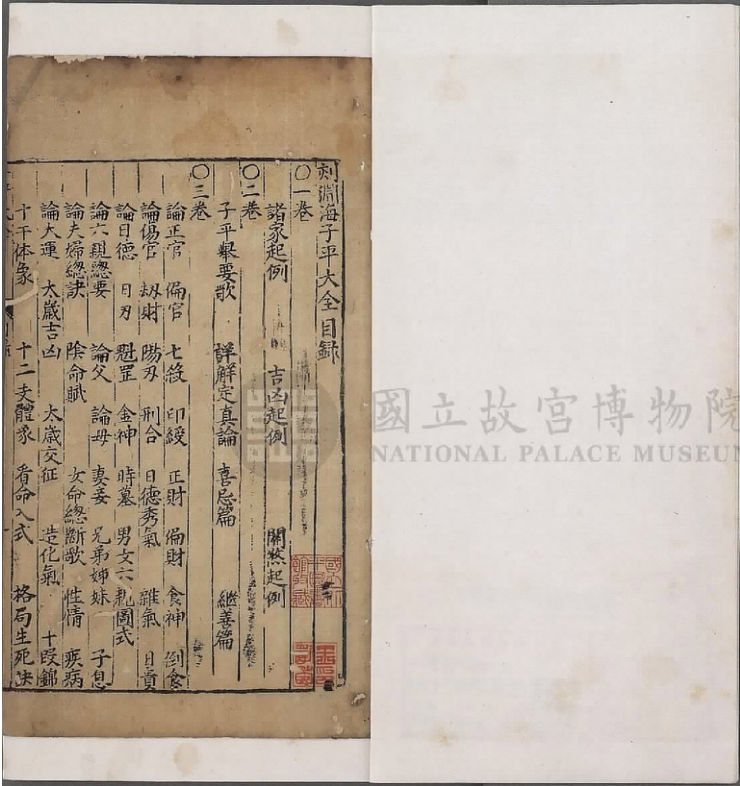 刻淵海子平大全目録
○一卷
諸家起例 吉凶起例 關煞起例
○二卷
子平舉要歌 詳解定真論 喜忌篇 継善篇
○三卷
論正官 偏官 七殺 印綬 正財 偏財 食神 倒食
論傷官 刼財 陽刃 刑合 日德秀氣 雜氣 日貴
論日德 日刃 魁罡 金神 時墓 男女六親圖式
論六親總要 論父 論母 妻妾 兄弟姊妹 子息
論夫婦總訣 陰命賦 女命總斷歌 性情 疾病
論大運 太歲吉凶 太歲交征 造化氣 十段錦
十干体象 十二支體象 看命入式 格局生死决
國立故宮博物院
NATIONAL PALACE MUSEUM